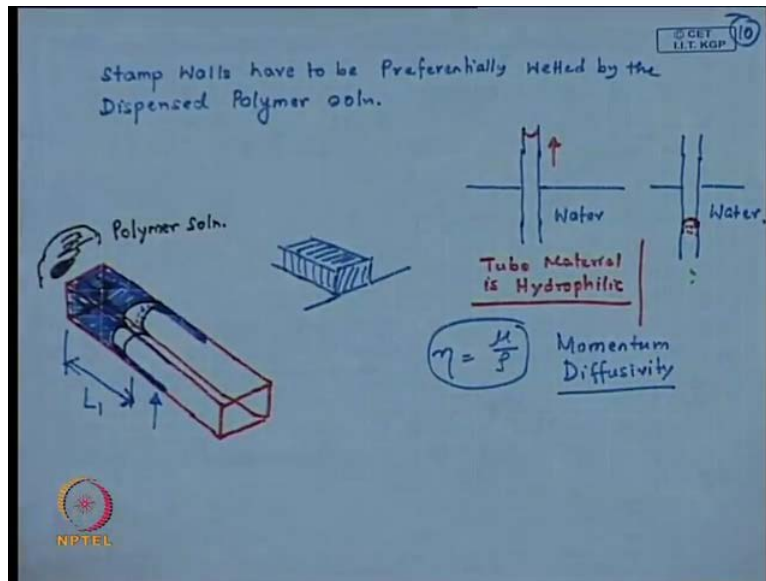 © CET
I.I.T. KGP
10
Stamp Walls have to be Preferentially Wetted by the
Dispensed Polymer soln.
Polymer soln.
Water
Water.
Tube Material
is Hydrophilic
η = μ/ρ
Momentum
Diffusivity
L₁
NPTEL